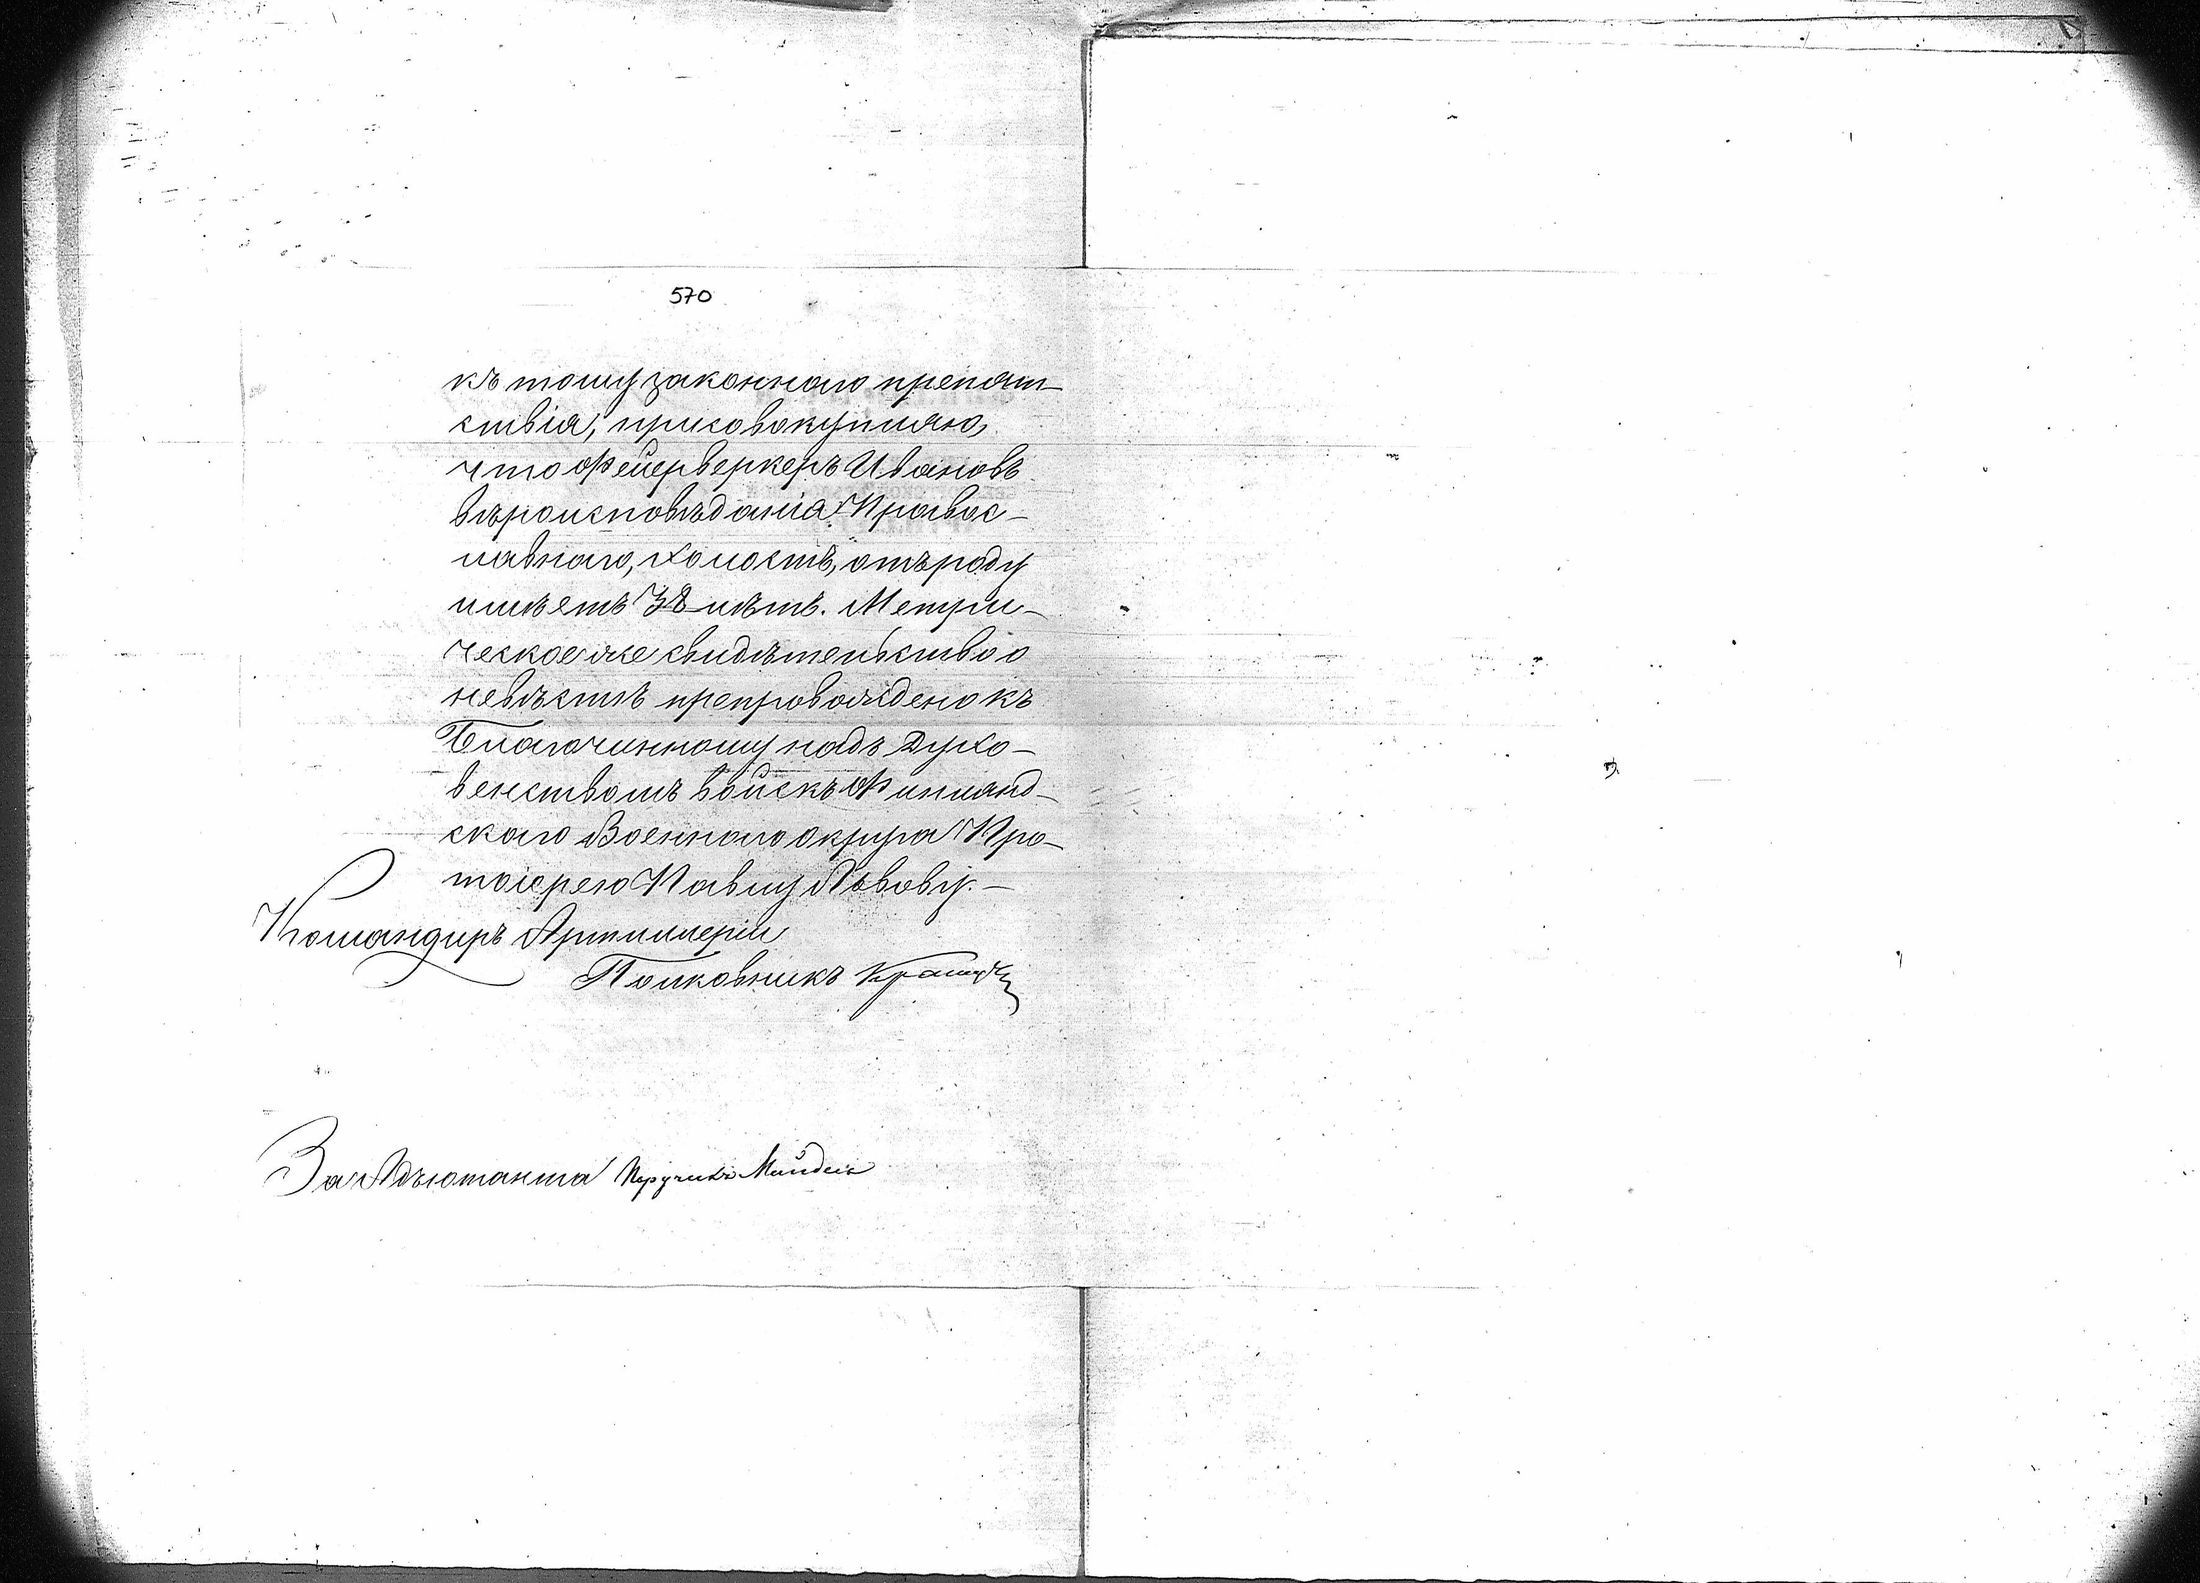 570
къ тому законнаго препят-
ствія, присовокупляю,
что Фейерверкеръ Ивановъ
вѣроисповѣданія Правос-
лавнаго, холостъ, отъ роду
имѣетъ 38 лѣтъ. Метри-
ческое же свидѣтельство о
невѣстѣ препровождено къ
Благочинному надъ Духо-
венствомъ войскъ Финлянд-
скаго Военнаго округа Про-
тоіерею Павлу Львову.-
Командиръ Артиллеріи
Полковникъ
За Адъютанта Поручикъ